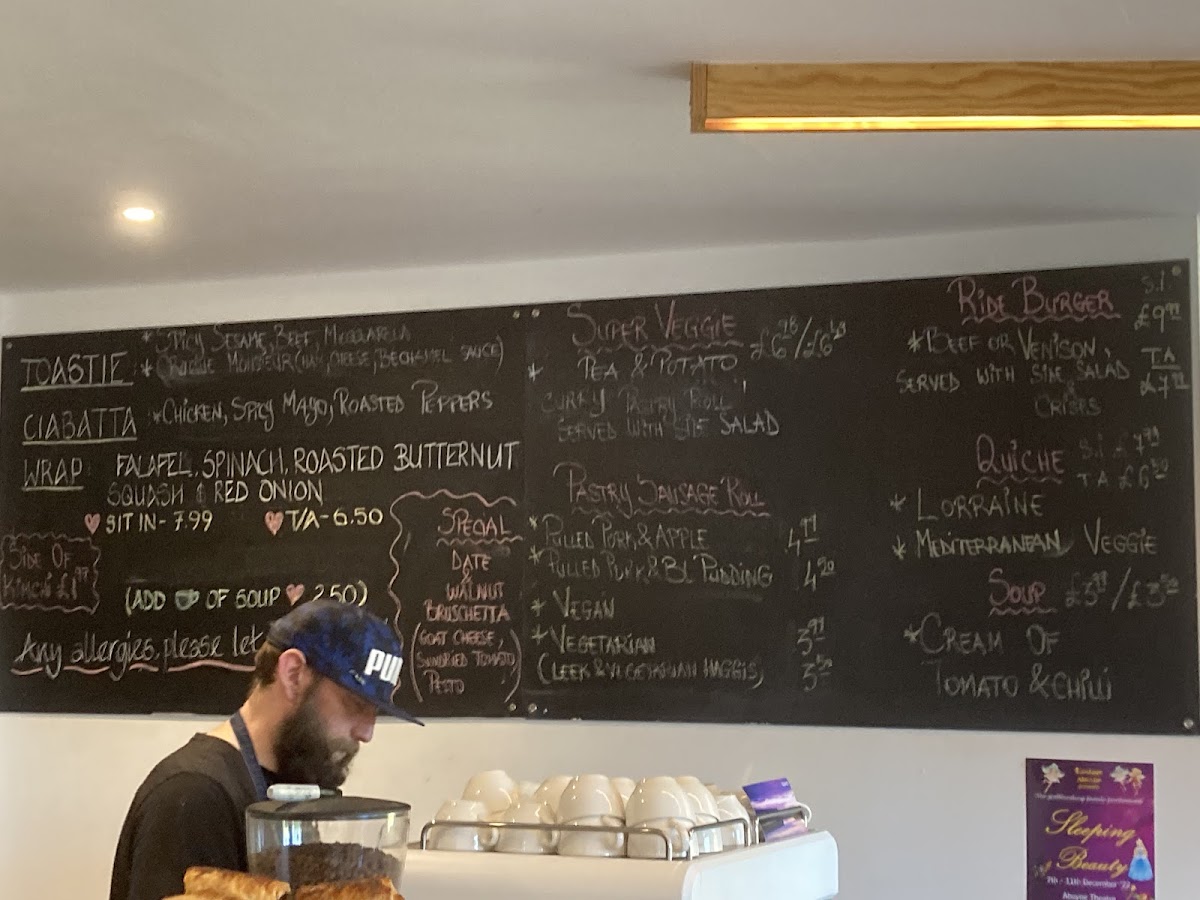 TOASTIE
* SPICY SESAME, BEEF, MOZZARELLA
* CROQUE MONSIEUR (HAM, CHEESE, BECHAMEL SAUCE)
CIABATTA
* CHICKEN, SPICY MAYO, ROASTED PEPPERS
WRAP
FALAFEL, SPINACH, ROASTED BUTTERNUT
SQUASH & RED ONION
SIT IN - 7.99
T/A - 6.50
SIDE OF
KIMCHI
(ADD OF SOUP 2.50)
Any allergies, please let
SPECIAL
DATE
&
WALNUT
BRUSCHETTA
(GOAT CHEESE,
SUNDRIED TOMATO,
PESTO)
SUPER VEGGIE
* PEA & POTATO
CURRY PASTRY ROLL,
SERVED WITH SIDE SALAD
PASTRY SAUSAGE ROLL
* PULLED PORK & APPLE 4.99
* PULLED PORK & BL PUDDING 4.20
* VEGAN
* VEGETARIAN 3.99
(LEEK & VEGETARIAN HAGGIS) 3.50
RIDE BURGER
S.I.
£9.99
* BEEF OR VENISON,
SERVED WITH SIDE SALAD
&
CRISPS
TA
QUICHE
S.I. £7.99
TA £6.50
* LORRAINE
* MEDITERRANEAN VEGGIE
SOUP £3.99/£3.50
* CREAM OF
TOMATO & CHILLI
PUM
Sleeping
Beauty
7th - 11th December